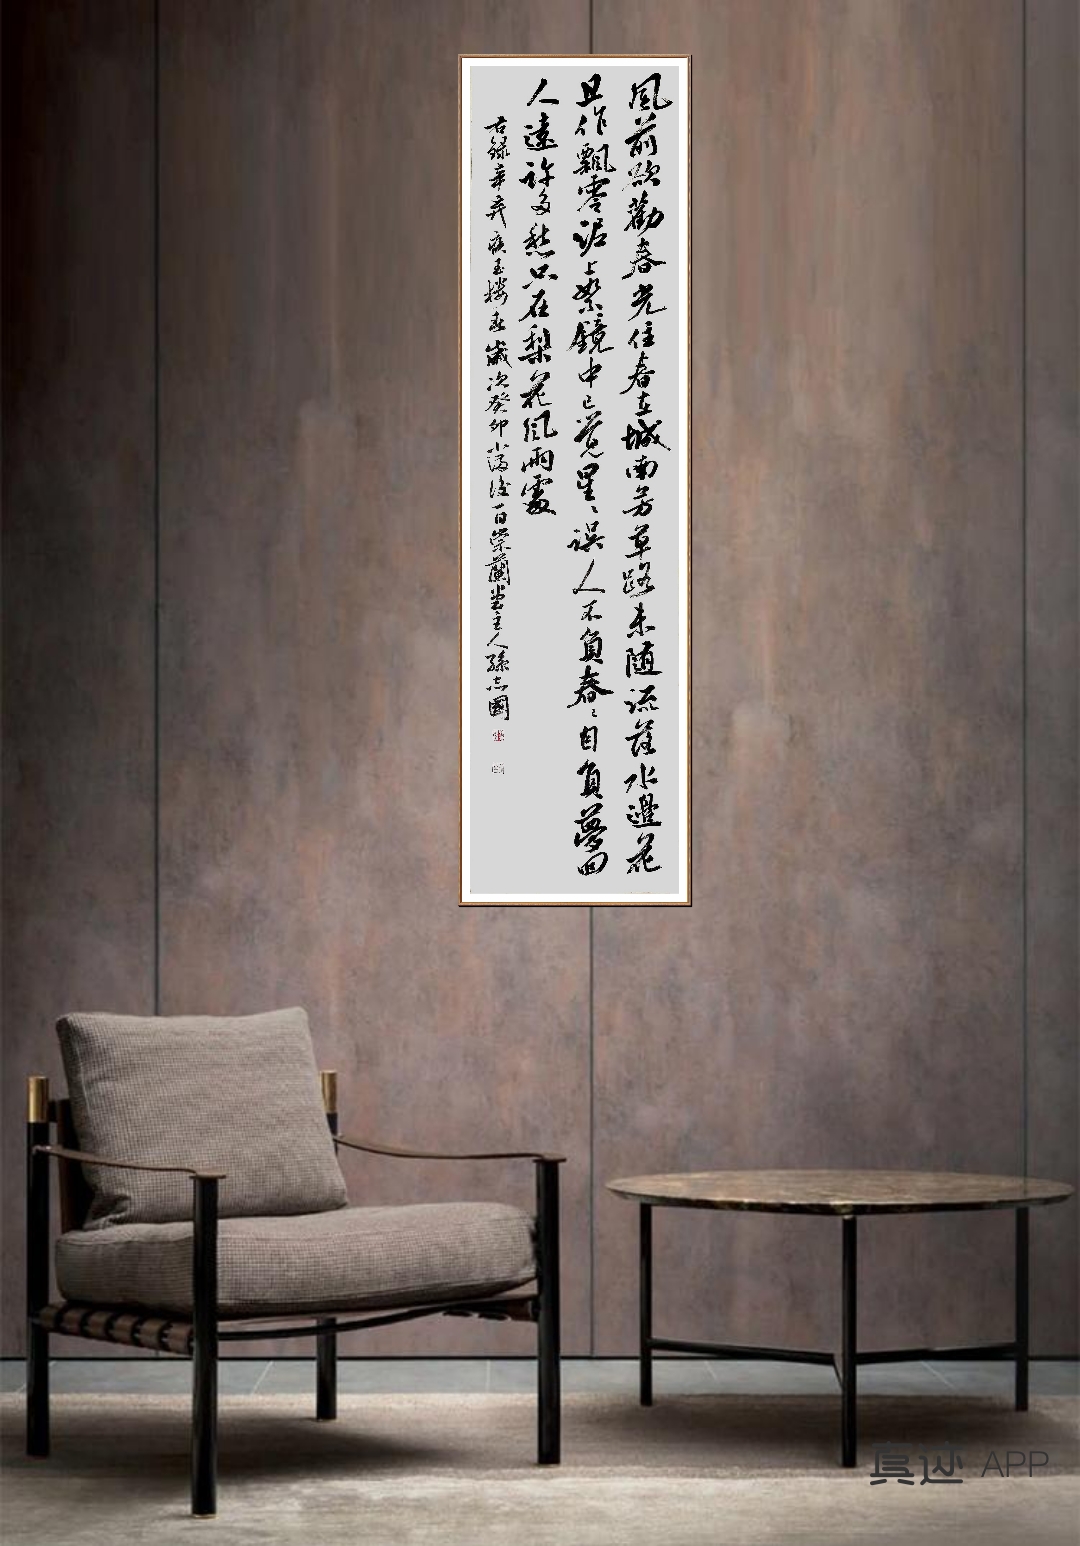 風前欲勸春光住春在城南芳草路未随流落水邊花
且作飄零泥上絮鏡中已覺星〻誤人不負春〻自負夢回
人遠許多愁只在梨花風雨處
右録辛弃疾玉楼春歲次癸卯小满後一日崇蘭堂主人孫志國
真迹 APP